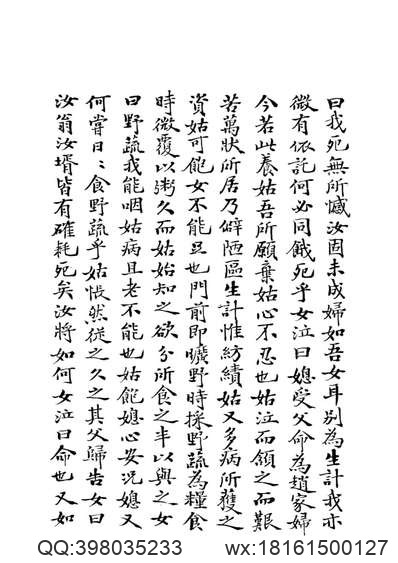 曰我死無所憾汝固未成婦如吾女耳别為生計我亦
微有依託何必同餓死乎女泣曰媳受父命為趙家婦
今若此養姑吾所願棄姑心不忍也姑泣而頷之而艱
苦萬狀所居乃僻陋區生計惟紡績姑又多病所獲之
資姑可飽女不能旦也門前即曠野時採野蔬為糧食
時微覆以粥久而姑始知之欲分所食之半以與之女
曰野蔬我能咽姑病且老不能也姑飽媳心安況媳又
何嘗日〻食野蔬乎姑悵然從之久之其父歸告女曰
汝翁汝壻皆有確耗死矣汝將如何女泣曰命也又如
QQ:398035233 wx:18161500127